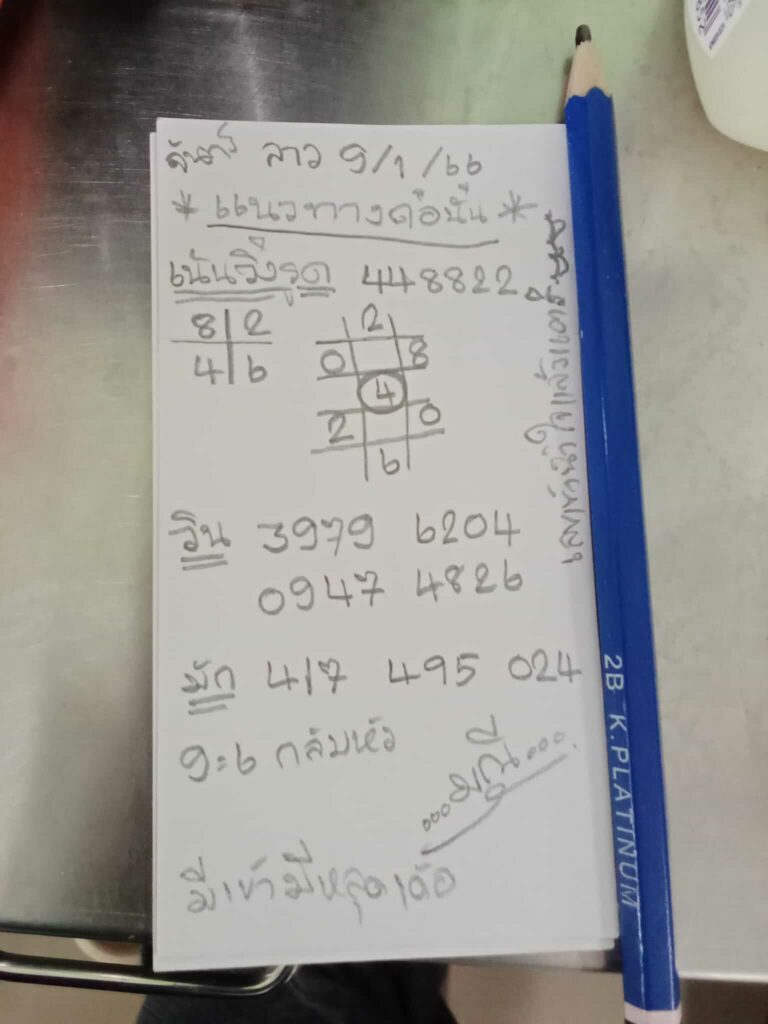 จันทร์ ลาว 9/1/66
* แนวทางด้อนั่น *
เน้นวิ่งรูด 448822
8 2
4 6
2
0 8
4
2 0
6
วิน 3979 6204
0947 4826
มัก 417 495 024
9=6 กลับหัว
...มณี...
มีเข้ามีหลุดเด้อ
2B K.PLATINUM